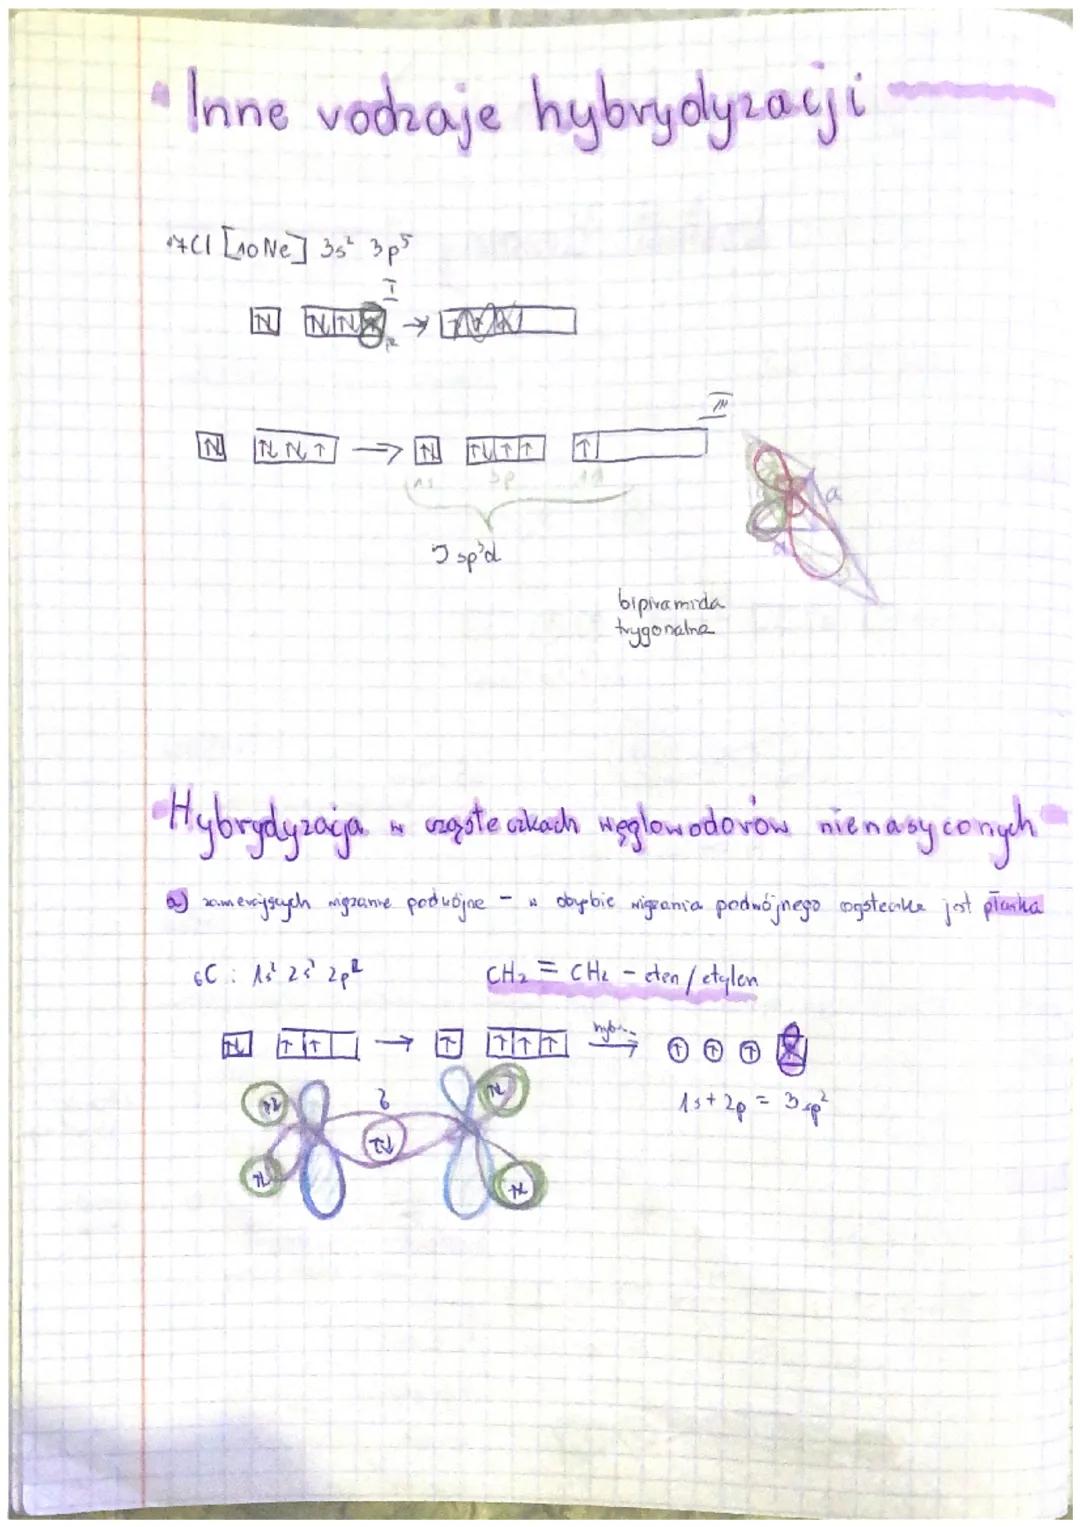 Inne rodzaje hybrydyzacji
17Cl [10Ne] 3s² 3p⁵
I
III
1s 3p 1d
5 sp³d
bipiramida
trygonalna
Hybrydyzacja w cząsteczkach węglowodorów nienasyconych
a) zawierających wiązanie podwójne - w obrębie wiązania podwójnego cząsteczka jest płaska
6C : 1s² 2s² 2p²
CH₂ = CH₂ - eten / etylen
hybr.
1s + 2p = 3 sp²